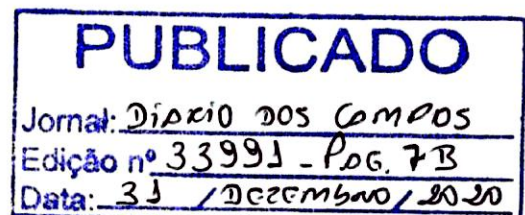 PUBLICADO
Jornal: DIÁRIO DOS CAMPOS
Edição nº 33991 - PAG. 7B
Data: 31 / DEZEMBRO / 2020